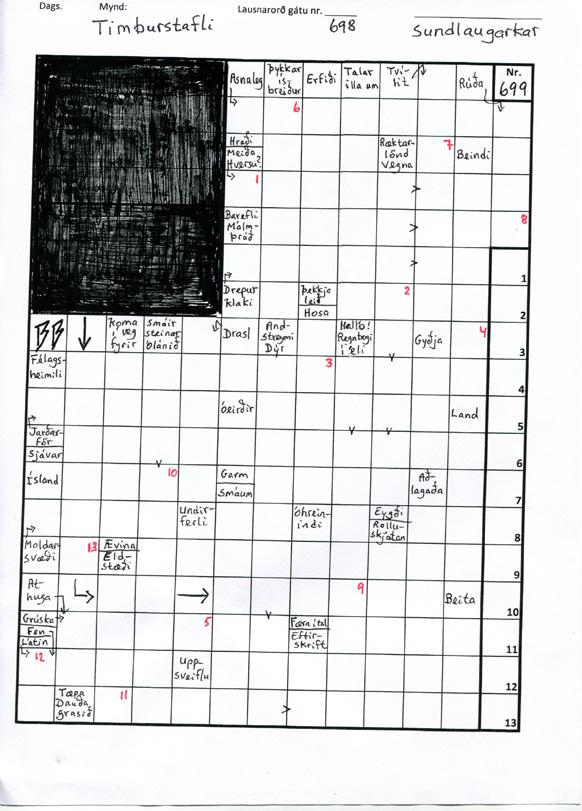 Dags. Mynd: Lausnarorð gátu nr.
Timburstafli 698 Sundlaugarkar
Asnaleg
Þykkar
ís-
breiður
Erfiði
Talar
illa um
Tví-
lit
Rúða
Nr.
699
6
Hraði
Meiða
Hversu?
Ræktar-
lönd
Vegna
7
Beindi
1
>
Barefli
Málm-
þráð
>
8
>
1
Drepur
Klaki
Þekkja
leið
Hosa
2
2
BB
Koma
í veg
fyrir
Smáir
steinar
Blánið
Drasl
And-
streymi
Dýr
Halló!
Regnbogi
í éli
Gyðja
4
3
Félags-
heimili
3
4
Óeirðir
Land
5
Jarðar-
för
Sjávar
6
Ísland
10
Garm
Smáum
Að-
lagaða
7
Undir-
ferli
Óhrein-
indi
Eygði
Rollu-
skjátan
8
Moldar-
svæði
13
Ævina
Eld-
stæði
9
At-
huga
9
Beita
10
Grúska
Fen
Látin
5
Færa í tal
Eftir-
skrift
11
12
Upp-
sveiflu
12
Tæpa
Dauða
grasið
11
>
13